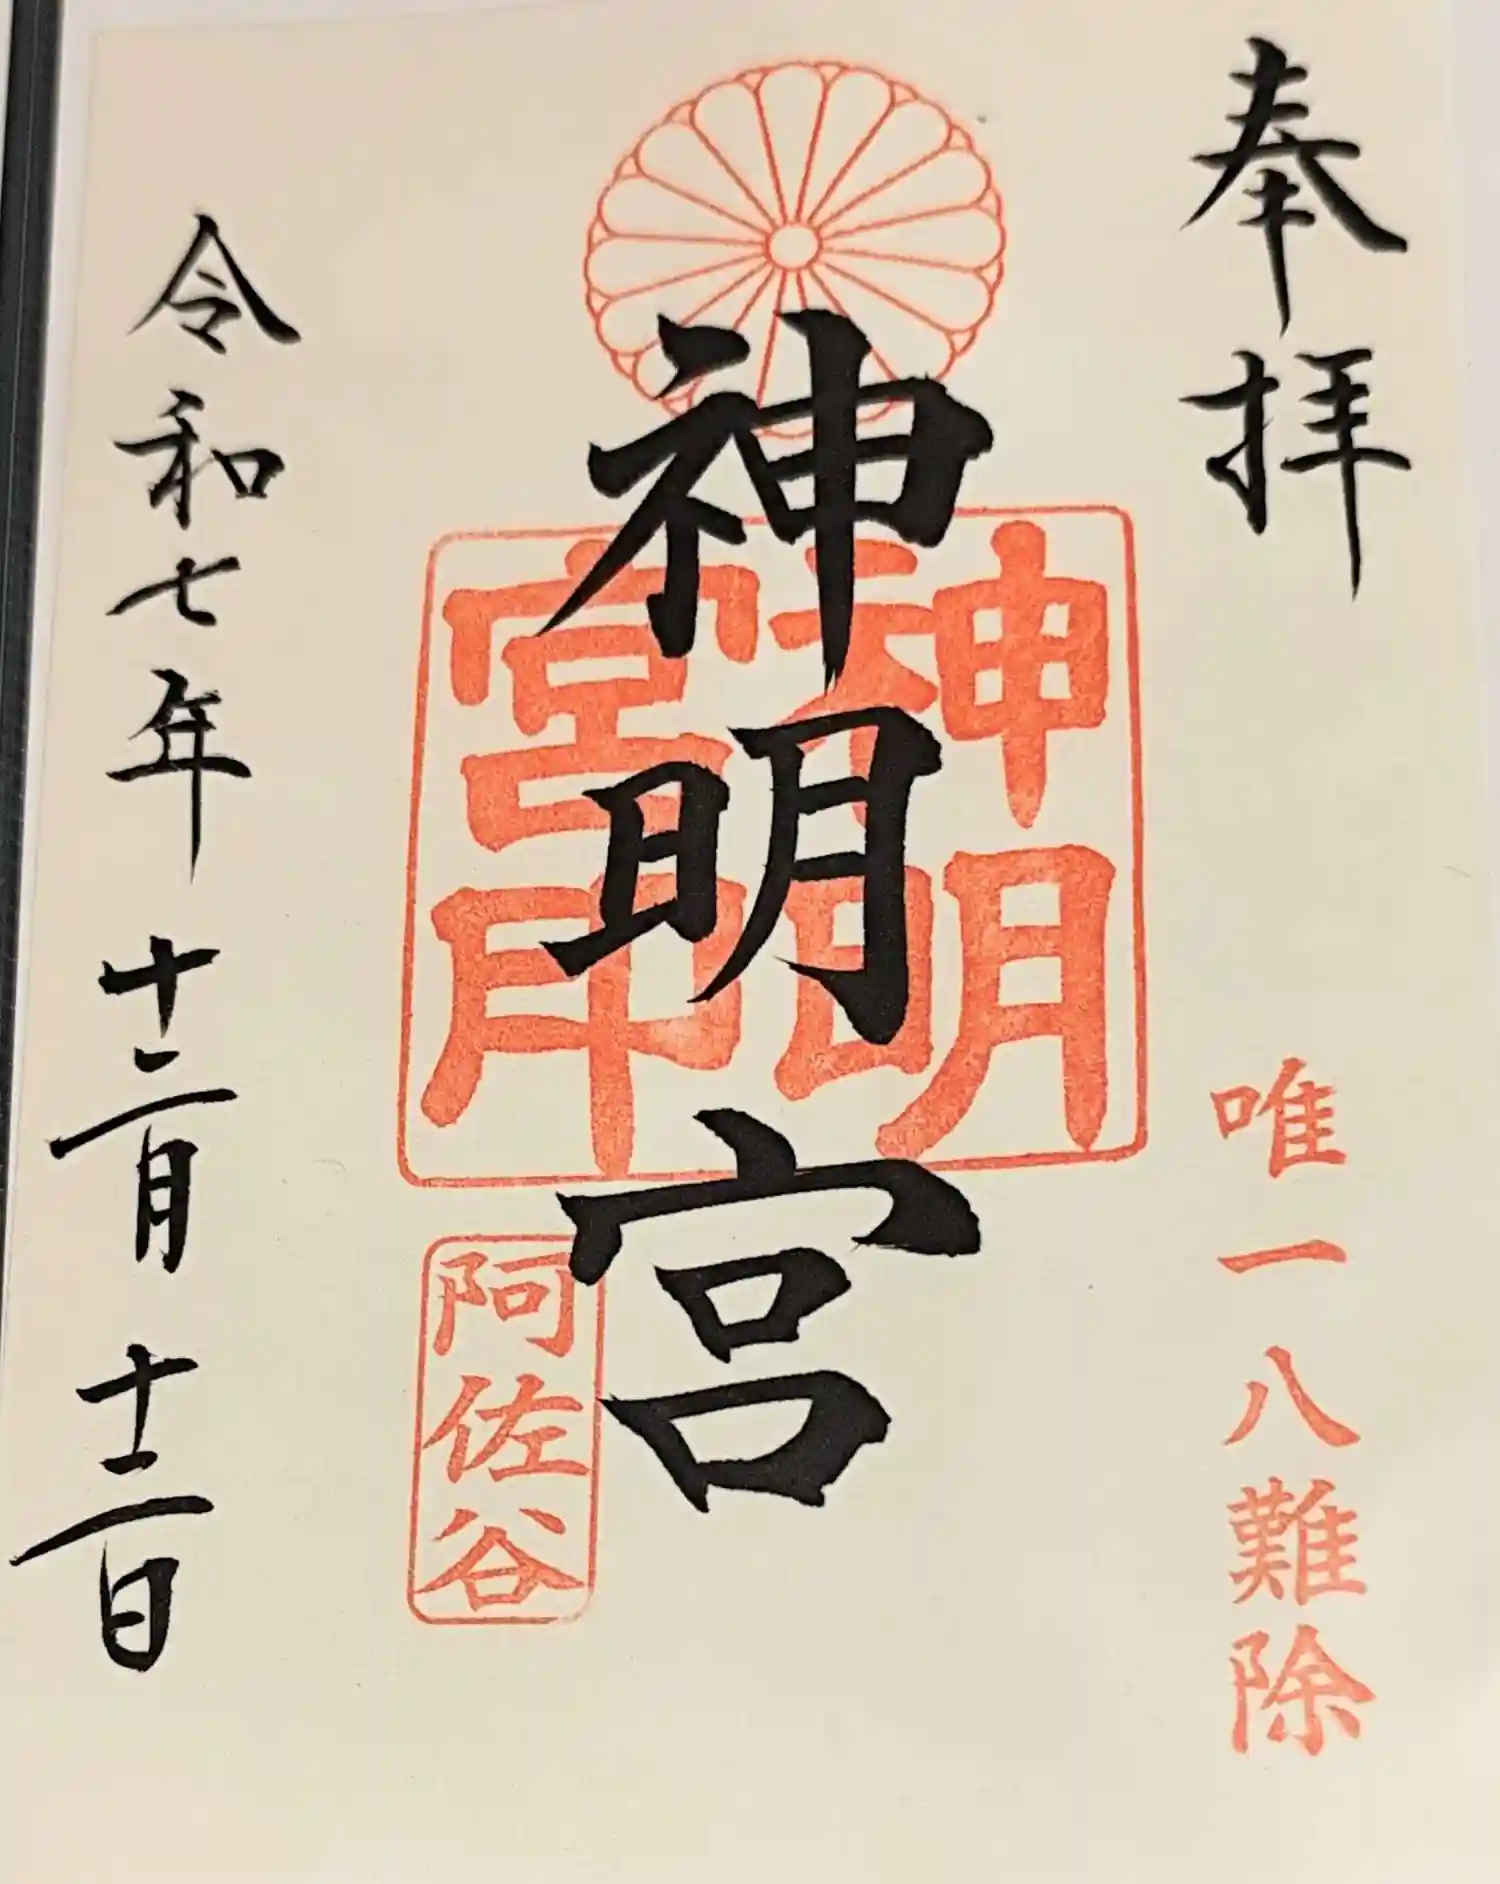 奉拝
唯一八難除
神明宮
神明
宮印
阿佐谷
令和七年十二月十二日